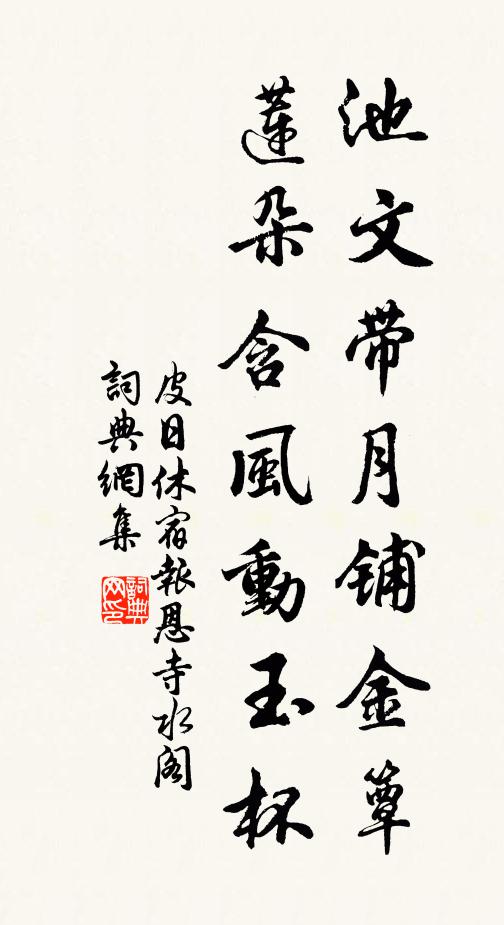 池文带月铺金簟
蓮朵含風動玉杯
皮日休宿報恩寺水阁
詞典網集
詞典网印